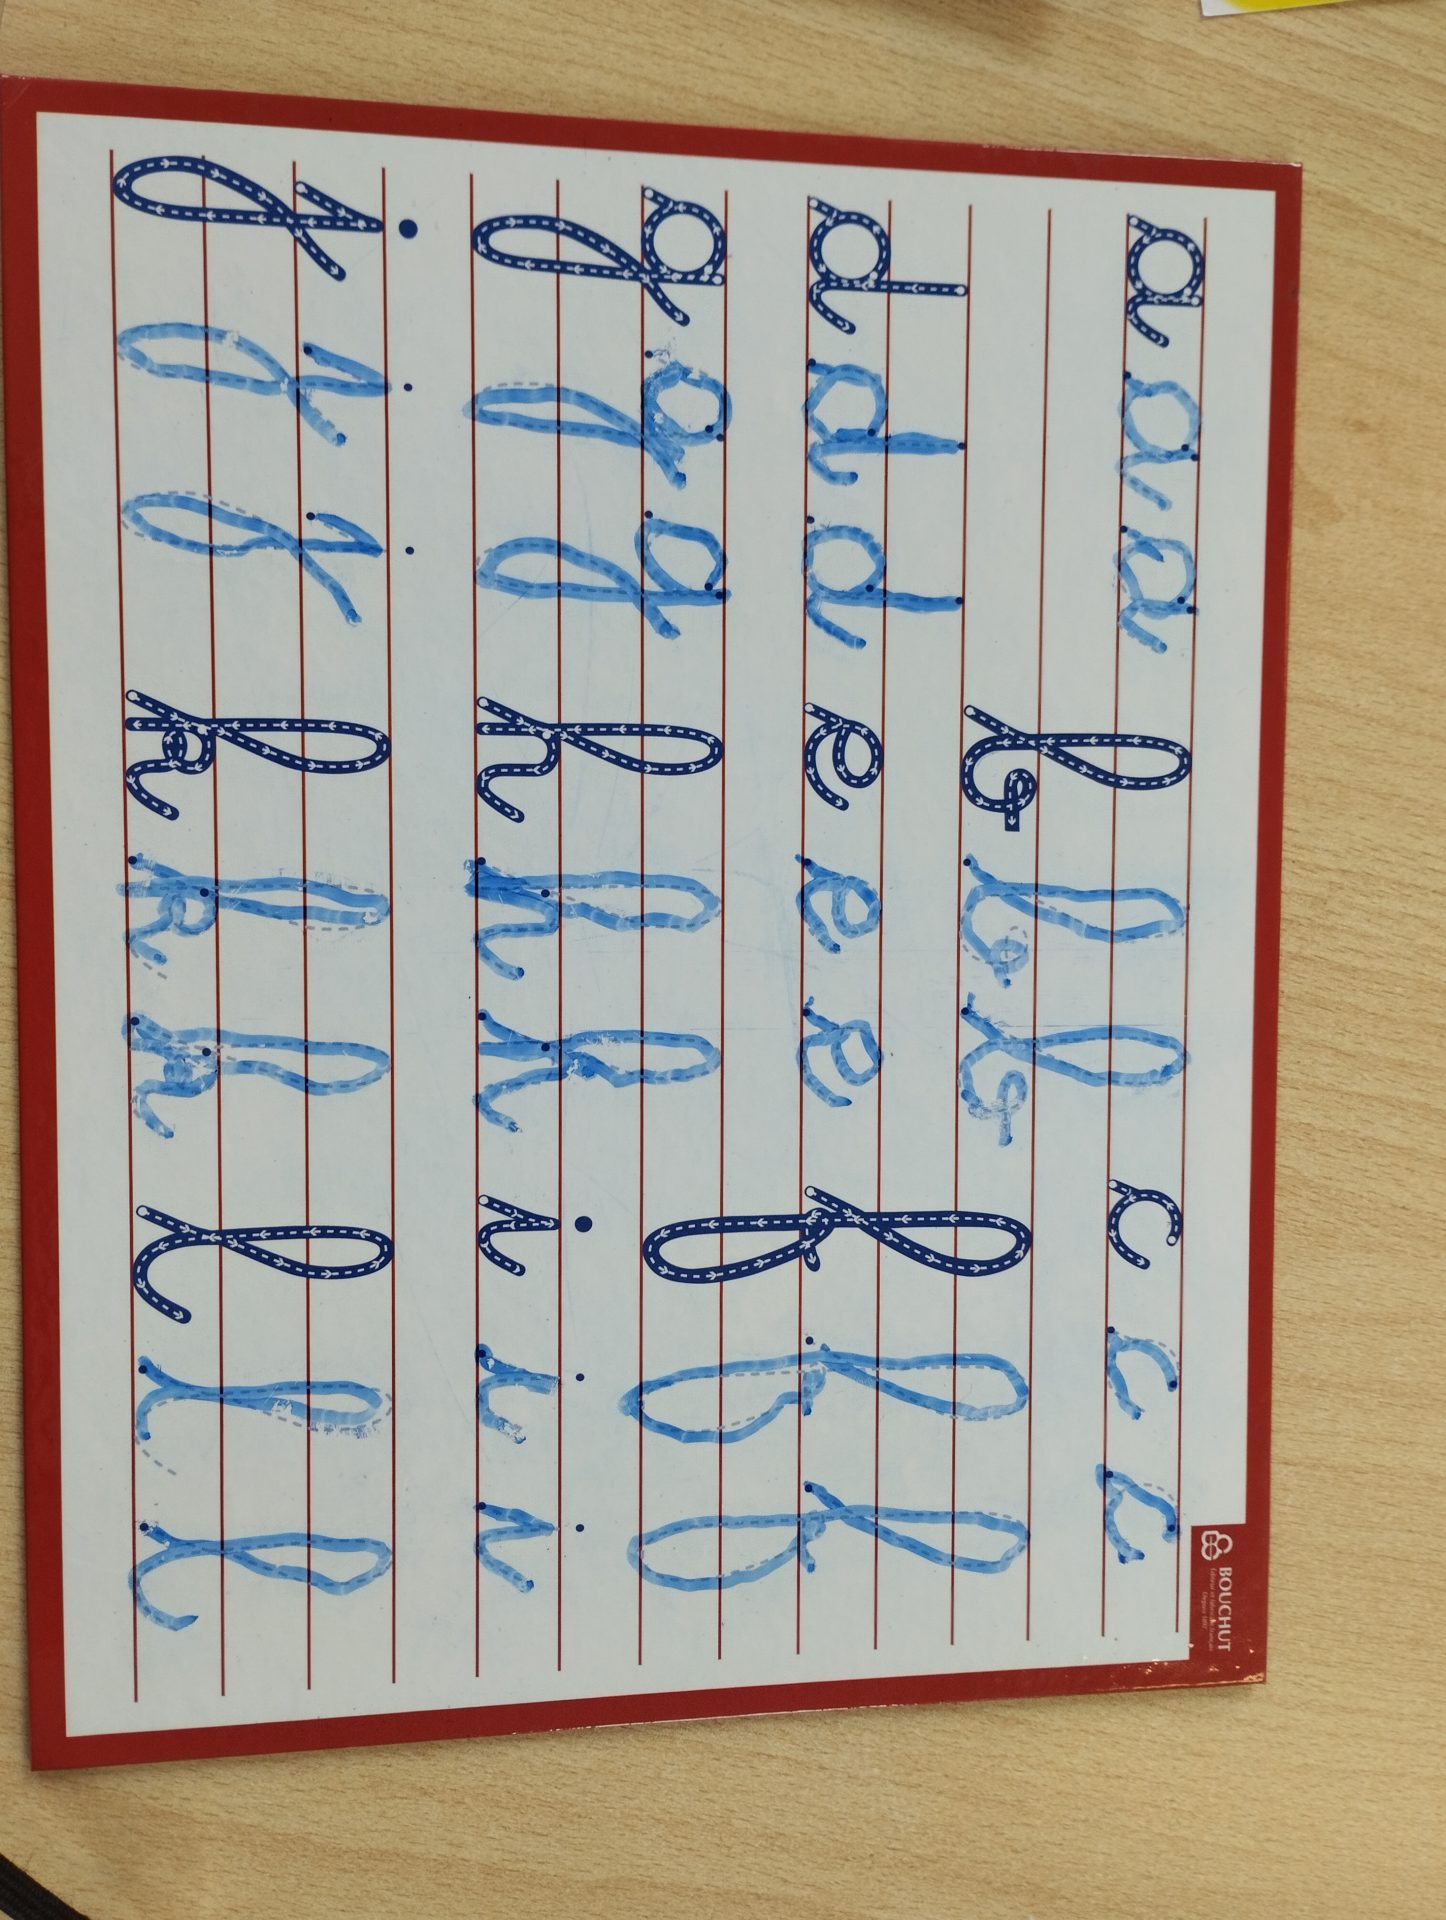 a a a b b b c c c
d d d e e e f f f
g g g h h h i i i
j j j k k k l l l
BOUCHUT